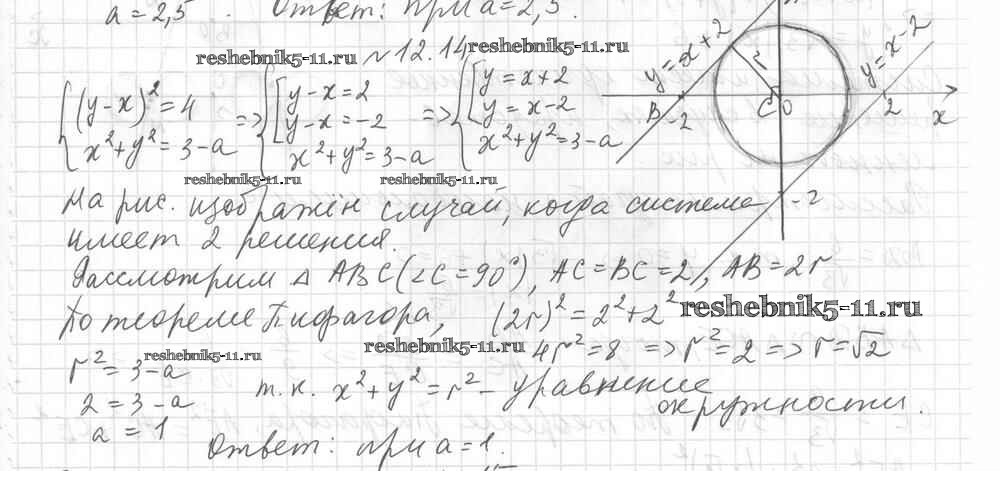 a = 2,5. Ответ: при a = 2,5.
reshebnik5-11.ru №12.14 reshebnik5-11.ru
{ (y-x)² = 4 => { [ y-x = 2 => { [ y = x+2
[ y-x = -2 [ y = x-2
x²+y² = 3-a x²+y² = 3-a x²+y² = 3-a
reshebnik5-11.ru reshebnik5-11.ru
y = x+2
r
y = x-2
B -2 C 0 2 x
-2
На рис. изображён случай, когда система
имеет 2 решения.
Рассмотрим △ ABC (∠C = 90°), AC = BC = 2, AB = 2r
По теореме Пифагора, (2r)² = 2²+2² reshebnik5-11.ru
reshebnik5-11.ru reshebnik5-11.ru 4r² = 8 => r² = 2 => r = √2
r² = 3-a т.к. x²+y² = r² - уравнение
2 = 3-a окружности.
a = 1
Ответ: при a = 1.